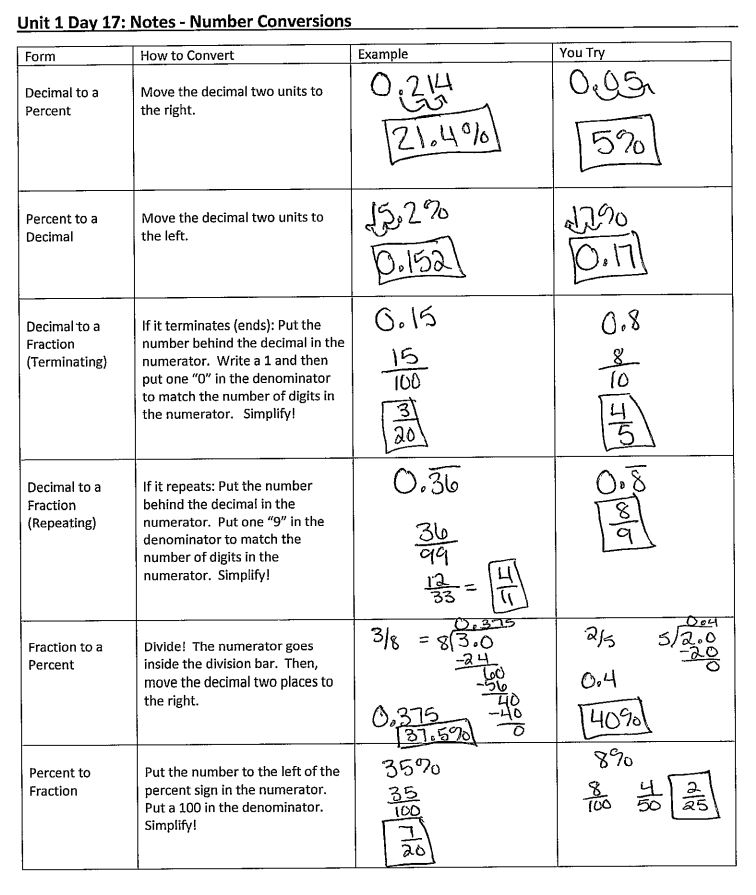 Unit 1 Day 17: Notes - Number Conversions
Form How to Convert Example You Try
Decimal to a
Percent
Move the decimal two units to
the right.
0.214
21.4%
0.05
5%
Percent to a
Decimal
Move the decimal two units to
the left.
15.2%
0.152
17%
0.17
Decimal to a
Fraction
(Terminating)
If it terminates (ends): Put the
number behind the decimal in the
numerator. Write a 1 and then
put one "0" in the denominator
to match the number of digits in
the numerator. Simplify!
0.15
15/100
3/20
0.8
8/10
4/5
Decimal to a
Fraction
(Repeating)
If it repeats: Put the number
behind the decimal in the
numerator. Put one "9" in the
denominator to match the
number of digits in the
numerator. Simplify!
0.3̅6̅
36/99
12/33 = 4/11
0.8̅
8/9
Fraction to a
Percent
Divide! The numerator goes
inside the division bar. Then,
move the decimal two places to
the right.
0.375
3/8 = 8)3.0
-24
60
-56
40
-40
0
0.375
37.5%
0.4
2/5 5)2.0
-20
0
0.4
40%
Percent to
Fraction
Put the number to the left of the
percent sign in the numerator.
Put a 100 in the denominator.
Simplify!
35%
35/100
7/20
8%
8/100 4/50 2/25